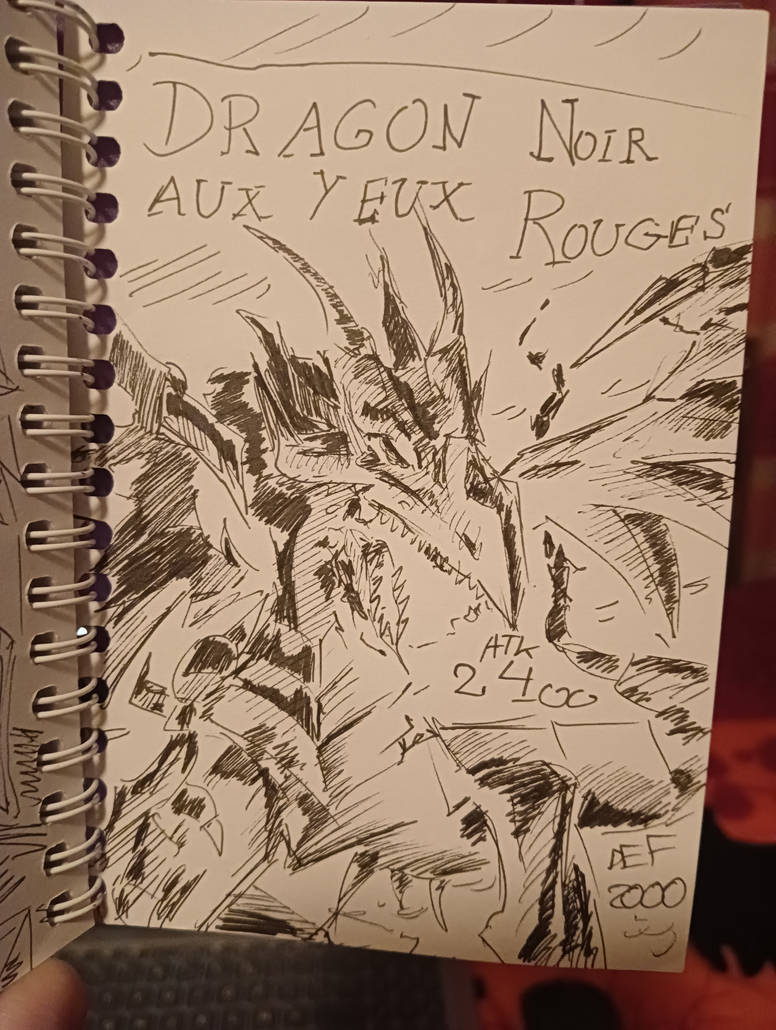 DRAGON NOIR
AUX YEUX ROUGES
ATK
2400
DEF
2000